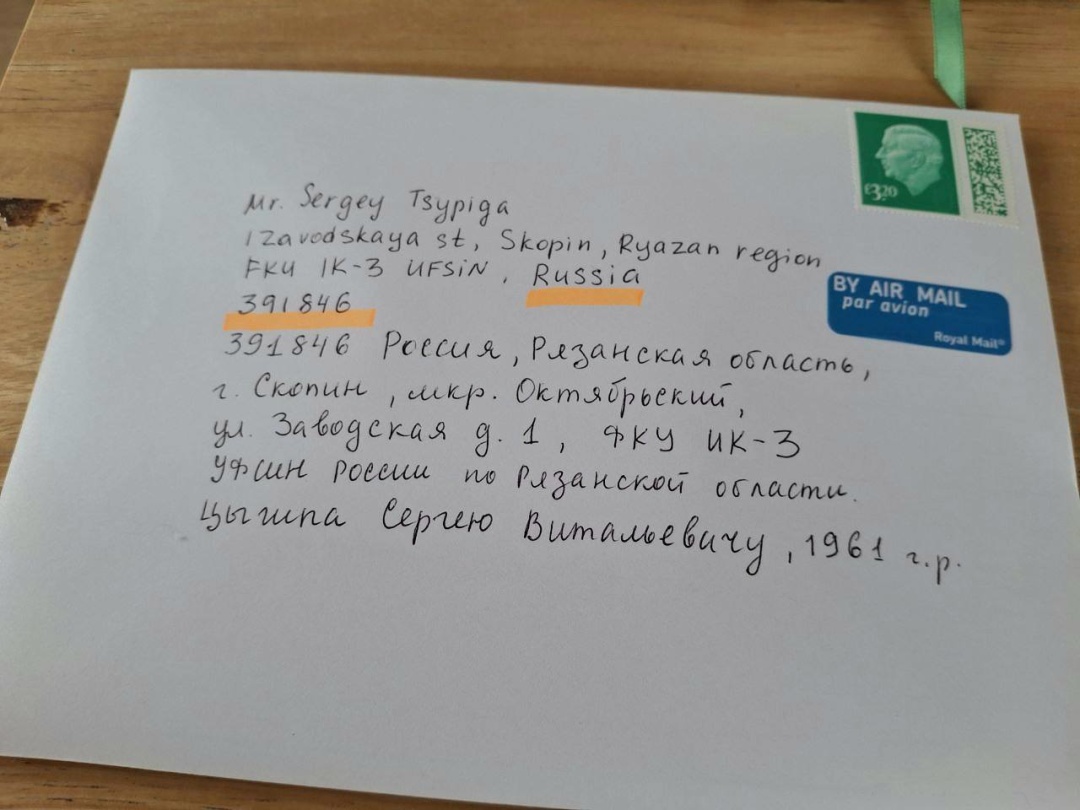 £3.20
Mr. Sergey Tsypiga
1 Zavodskaya st, Skopin, Ryazan region
FKU IK-3 UFSiN, Russia
391846
BY AIR MAIL
par avion
Royal Mail®
391846 Россия, Рязанская область,
г. Скопин, мкр. Октябрьский,
ул. Заводская д. 1, ФКУ ИК-3
УФСИН России по Рязанской области.
Цыгипа Сергею Витальевичу, 1961 г.р.